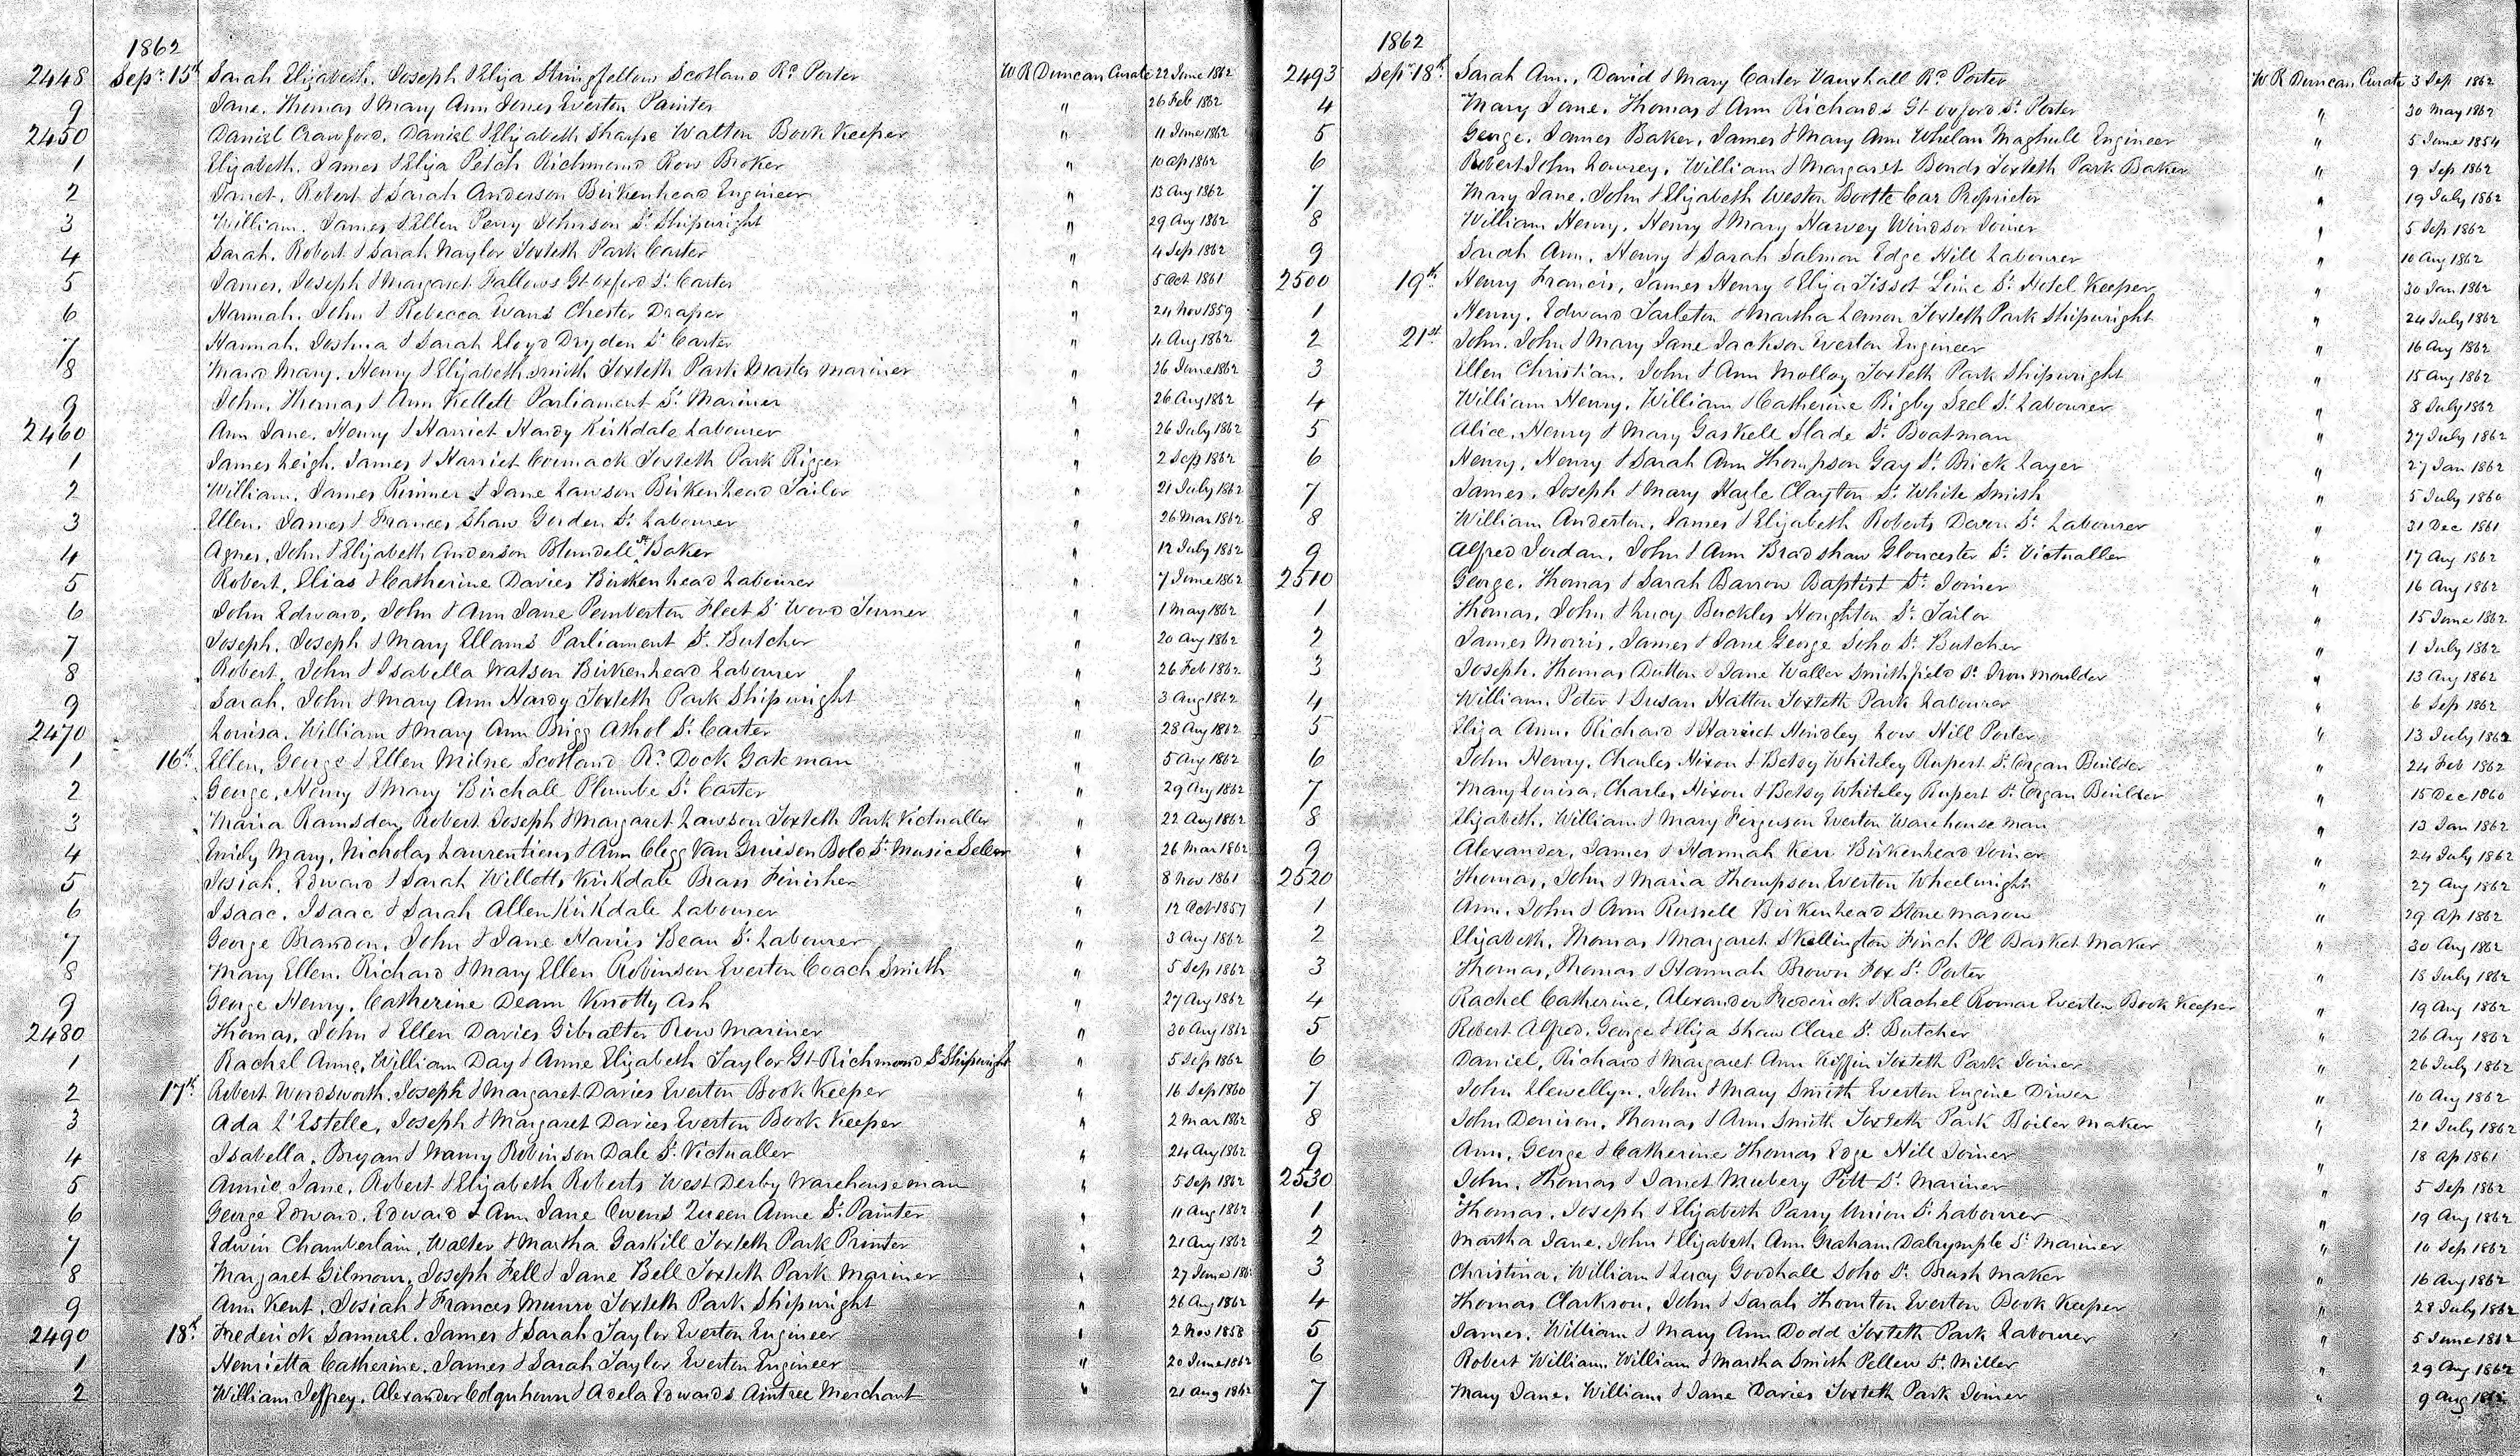 1862
2448 Sepr 15th Sarah Elizabeth. Joseph & Eliza Stringfellow Scotland Rd Porter W R Duncan Curate 22 June 1862
9 Jane. Thomas & Mary Ann Jones Everton Painter " 26 Feb 1862
2450 Daniel Crawford. Daniel & Elizabeth Sharpe Walton Book Keeper " 11 June 1862
1 Elizabeth. James & Eliza Petch Richmond Row Broker " 10 Ap 1862
2 Janet. Robert & Sarah Anderson Birkenhead Engineer " 13 Aug 1862
3 William. James & Ellen Perry Johnson St Shipwright " 29 Aug 1862
4 Sarah. Robert & Sarah Naylor Toxteth Park Carter " 4 Sep 1862
5 James. Joseph & Margaret Fallows Gt Oxford St Carter " 5 Oct 1861
6 Hannah. John & Rebecca Evans Chester Draper " 24 Nov 1859
7 Hannah. Joshua & Sarah Lloyd Dryden St Carter " 4 Aug 1862
8 Mary. Henry & Elizabeth Smith Toxteth Park Master Mariner " 26 June 1862
9 John. Thomas & Ann Kellett Parliament St Mariner " 26 Aug 1862
2460 Ann Jane. Henry & Harriet Hardy Kirkdale Labourer " 26 July 1862
1 James Leigh. James & Harriet Cormack Toxteth Park Rigger " 2 Sep 1862
2 William. James Rimmer & Jane Lawson Birkenhead Tailor " 21 July 1862
3 Ellen. James & Frances Shaw Gorden St Labourer " 26 Mar 1862
4 Agnes. John & Elizabeth Anderson Blundell St Baker " 12 July 1862
5 Robert. Elias & Catherine Davies Birkenhead Labourer " 7 June 1862
6 John Edward. John & Ann Jane Pemberton Fleet St Wood Turner " 1 May 1862
7 Joseph. Joseph & Mary Ellams Parliament St Butcher " 20 Aug 1862
8 Robert. John & Isabella Watson Birkenhead Labourer " 26 Feb 1862
9 Sarah. John & Mary Ann Hardy Toxteth Park Shipwright " 3 Aug 1862
2470 Louisa. William & Mary Ann Brigg Athol St Carter " 28 Aug 1862
1 16th Ellen. George & Ellen Milne Scotland Rd Dock Gate man " 5 Aug 1862
2 George. Henry & Mary Birchall Plumbe St Carter " 29 Aug 1862
3 Maria Ramsden. Robert Joseph & Margaret Lawson Toxteth Park Victualler " 22 Aug 1862
4 Emily Mary. Nicholas Laurentious & Ann Clegg Van Gruisen Bold St Music Seller " 26 Mar 1862
5 Josiah. Edward & Sarah Willotts Kirkdale Brass Finisher " 8 Nov 1861
6 Isaac. Isaac & Sarah Allen Kirkdale Labourer " 12 Oct 1857
7 George Brandon. John & Jane Harris Beau St Labourer " 3 Aug 1862
8 Mary Ellen. Richard & Mary Ellen Robinson Everton Coach Smith " 5 Sep 1862
9 George Henry. Catherine Deam Knotty Ash " 27 Aug 1862
2480 Thomas. John & Ellen Davies Gibralter Row Mariner " 30 Aug 1862
1 Rachel Anne. William Day & Anne Elizabeth Taylor Gt Richmond St Shipwright " 5 Sep 1862
2 17th Robert Wordsworth. Joseph & Margaret Davies Everton Book Keeper " 16 Sep 1860
3 Ada L'Estelle. Joseph & Margaret Davies Everton Book Keeper " 2 Mar 1862
4 Isabella. Bryan & Nanny Robinson Dale St Victualler " 24 Aug 1862
5 Annie Jane. Robert & Elizabeth Roberts West Derby Warehouseman " 5 Sep 1862
6 George Edward. Edward & Ann Jane Owens Queen Anne St Painter " 11 Aug 1862
7 Edwin Chamberlain. Walter & Martha Gaskill Toxteth Park Printer " 21 Aug 1862
8 Margaret Gilmour. Joseph Fell & Jane Bell Toxteth Park Mariner " 27 June 186
9 Ann Kent. Josiah & Frances Munro Toxteth Park Shipwright " 26 Aug 1862
2490 18th Frederick Samuel. James & Sarah Taylor Everton Engineer " 2 Nov 1858
1 Henrietta Catherine. James & Sarah Taylor Everton Engineer " 20 June 1862
2 William Jeffrey. Alexander Colquhoun & Adela Edwards Aintree Merchant " 21 Aug 1862
1862
2493 Sepr 18th Sarah Ann. David & Mary Carter Vauxhall Rd Porter W R Duncan Curate 3 Sep 1862
4 Mary Jane. Thomas & Ann Richards Gt Oxford St Porter " 30 May 1862
5 George. James Baker. James & Mary Ann Whelan Maghull Engineer " 5 June 1854
6 Robert John Lowrey. William & Margaret Bonds Toxteth Park Baker " 9 Sep 1862
7 Mary Jane. John & Elizabeth Weston Bootle Car Proprietor " 19 July 1862
8 William Henry. Henry & Mary Harvey Windsor Joiner " 5 Sep 1862
9 Sarah Ann. Henry & Sarah Salmon Edge Hill Labourer " 10 Aug 1862
2500 19th Henry Francis. James Henry & Eliza Tissot Lime St Hotel Keeper " 30 Jan 1862
1 Henry. Edward Tarleton & Martha Lemon Toxteth Park Shipwright " 24 July 1862
2 21st John. John & Mary Jane Jackson Everton Engineer " 16 Aug 1862
3 Ellen Christian. John & Ann Molloy Toxteth Park Shipwright " 15 Aug 1862
4 William Henry. William & Catherine Rigby Seel St Labourer " 8 July 1862
5 Alice. Henry & Mary Gaskell Slade St Boatman " 27 July 1862
6 Henry. Henry & Sarah Ann Thompson Gay St Brick Layer " 27 Jan 1862
7 James. Joseph & Mary Hazle Clayton St White Smith " 5 July 1860
8 William Anderton. James & Elizabeth Roberts Devon St Labourer " 31 Dec 1861
9 Alfred Jordan. John & Ann Bradshaw Gloucester St Victualler " 17 Aug 1862
2510 George. Thomas & Sarah Barrow Baptist St Joiner " 16 Aug 1862
1 Thomas. John & Lucy Buckles Houghton St Tailor " 15 June 1862
2 James Morris. James & Jane George Soho St Butcher " 1 July 1862
3 Joseph. Thomas Dutton & Jane Waller Smithfield St Iron Moulder " 13 Aug 1862
4 William. Peter & Susan Hatton Toxteth Park Labourer " 6 Sep 1862
5 Eliza Ann. Richard & Harriet Hindley Low Hill Porter " 13 July 1862
6 John Henry. Charles Hixon & Betsy Whiteley Rupert St Organ Builder " 24 Feb 1862
7 Mary Louisa. Charles Hixon & Betsy Whiteley Rupert St Organ Builder " 15 Dec 1860
8 Elizabeth. William & Mary Ferguson Everton Warehouse man " 13 Jan 1862
9 Alexander. James & Hannah Kerr Birkenhead Joiner " 24 July 1862
2520 Thomas. John & Maria Thompson Everton Wheelwright " 27 Aug 1862
1 Ann. John & Ann Russell Birkenhead Stone mason " 29 Ap 1862
2 Elizabeth. Thomas & Margaret Skellington Finch Pl Basket Maker " 30 Aug 1862
3 Thomas. Thomas & Hannah Brown Fox St Porter " 18 July 1862
4 Rachel Catherine. Alexander Frederick & Rachel Romar Everton Book Keeper " 19 Aug 1862
5 Robert Alfred. George & Eliza Shaw Clare St Butcher " 26 Aug 1862
6 Daniel. Richard & Margaret Ann Kiffin Toxteth Park Joiner " 26 July 1862
7 John Llewellyn. John & Mary Smith Everton Engine Driver " 10 Aug 1862
8 John Denison. Thomas & Ann Smith Toxteth Park Boiler maker " 21 July 1862
9 Ann. George & Catherine Thomas Edge Hill Joiner " 18 Ap 1861
2530 John. Thomas & Janet Mubery Pitt St Mariner " 5 Sep 1862
1 Thomas. Joseph & Elizabeth Parry Union St Labourer " 19 Aug 1862
2 Martha Jane. John & Elizabeth Ann Graham Dalrymple St Mariner " 10 Sep 1862
3 Christina. William & Lucy Goodhall Soho St Brush maker " 16 Aug 1862
4 Thomas Clarkson. John & Sarah Thornton Everton Book Keeper " 28 July 1862
5 James. William & Mary Ann Dodd Toxteth Park Labourer " 5 June 1862
6 Robert William. William & Martha Smith Pellew St Miller " 29 Aug 1862
7 Mary Jane. William & Jane Davies Toxteth Park Joiner " 9 Aug 1862